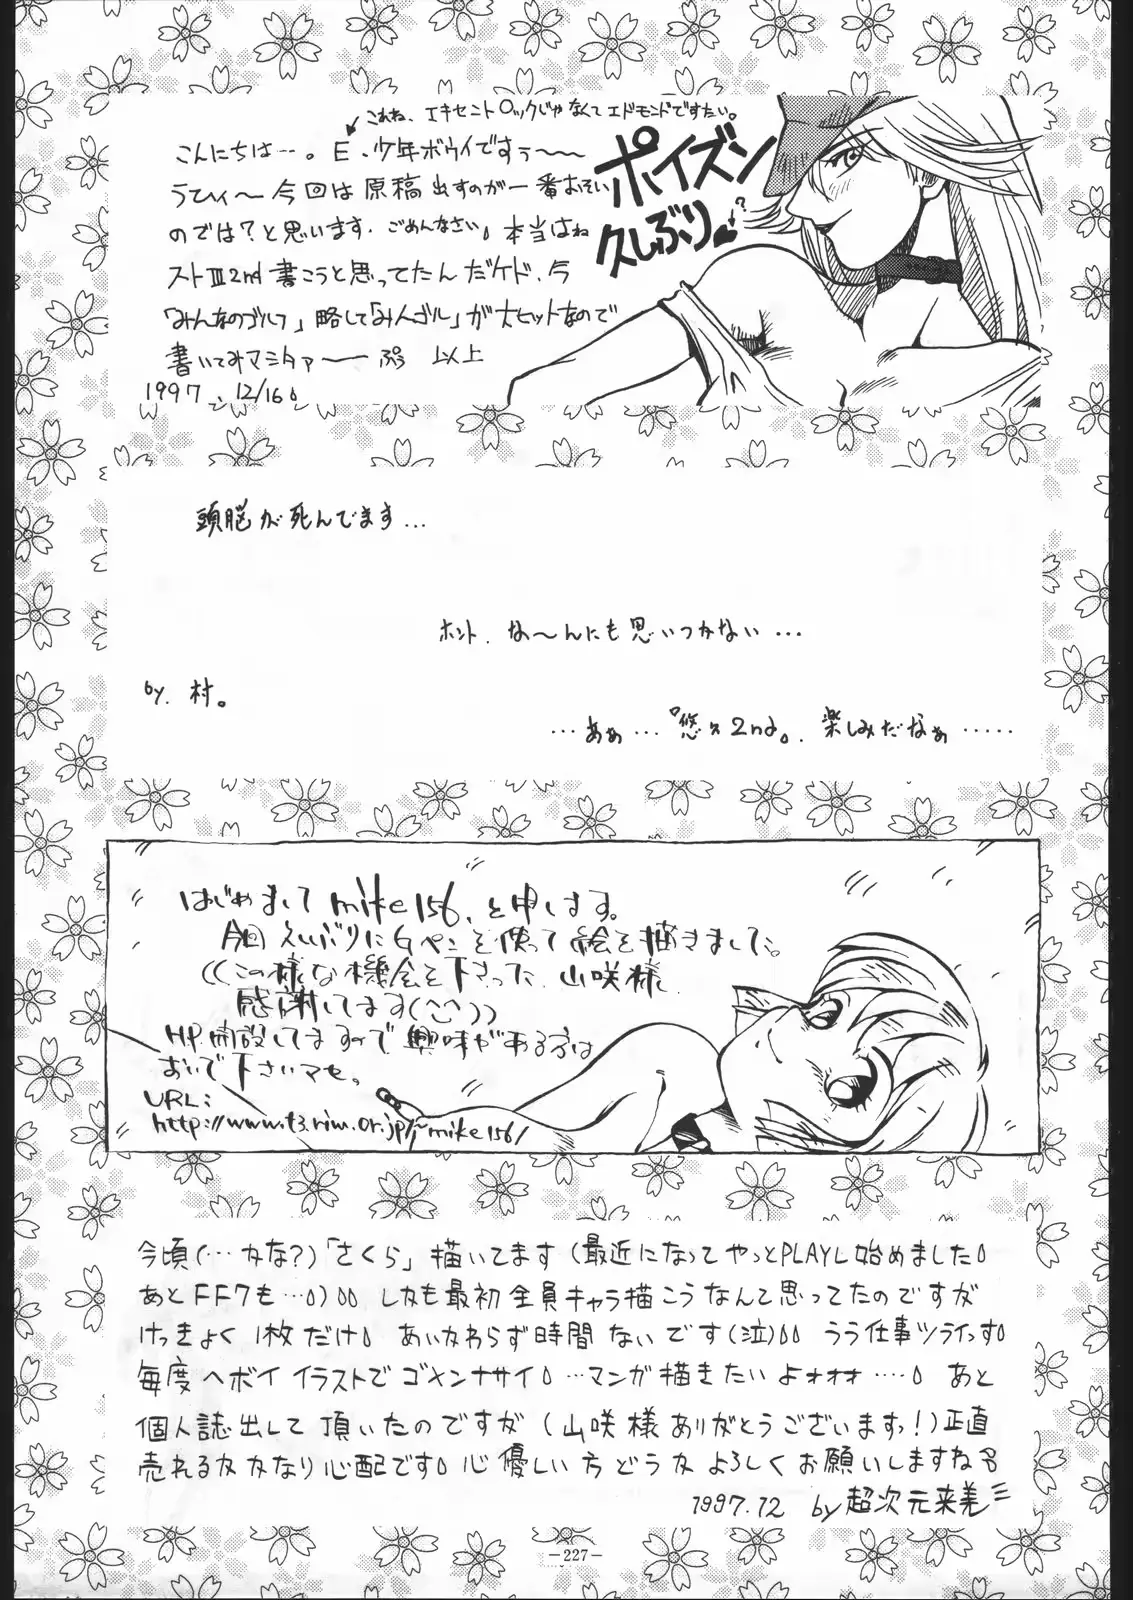 これね、エキセントロックじゃなくてエドモンドですたい。
こんにちは…。E.少年ボウイですぅ〜〜
うひィ〜今回は原稿出すのが一番おそい
のでは?と思います.ごめんなさい。本当はね
ストⅢ2nd書こうと思ってたんだケド、今
「みんなのゴルフ」略して「みんゴル」が大ヒットなので
書いてみマシタァー ぷぅ 以上
1997.12/16。
ポイズン
久しぶり
頭脳が死んでます…
ホント.な〜んにも思いつかない…
by.村。
…あぁ…『悠久2nd。.楽しみだなぁ……
はじめまして mike156.と申します。
今回えらいぶりにGペンを使って絵を描きました。
((この様な機会を下さった.山咲様.
感謝してます(^^))
HP.開設してますので興味がある方は
おいで下さいマセ。
URL:
http://www.t3.rim.or.jp/~mike156/
今頃(…カな?)「さくら」描いてます(最近になってやっとPLAYし始めました。
あとFF7も…。)。。しかも最初全員キャラ描こうなんて思ってたのですが
けっきょく1枚だけ。あいかわらず時間ないです(泣)。。うう仕事ツライっす。
毎度ヘボイイラストでゴメンナサイ。…マンガ描きたいよォォォ…。あと
個人誌出して頂いたのですが(山咲様ありがとうございますっ!)正直
売れるかかなり心配です。心優しい方どうかよろしくお願いしますね
1997.12 by超次元来美
-227-